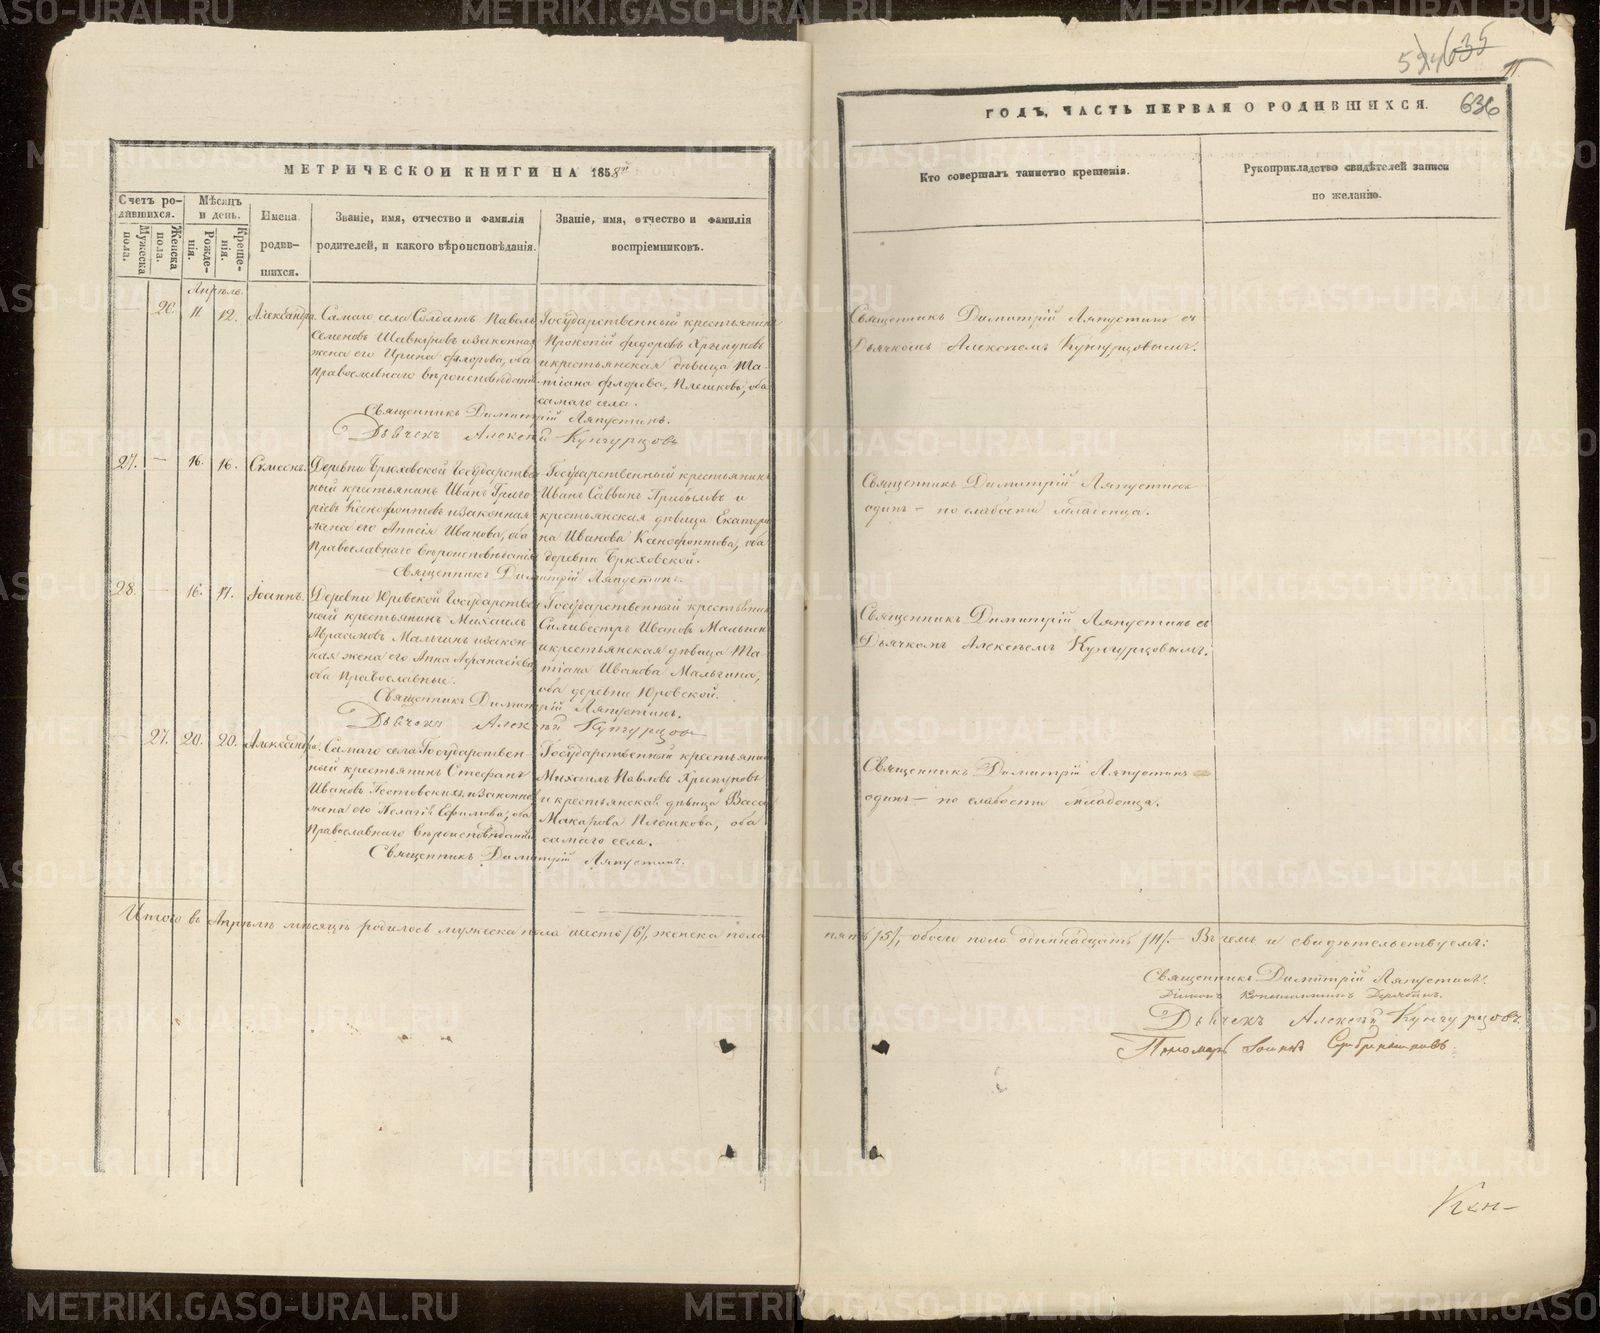 МЕТРИЧЕСКОЙ КНИГИ НА 1858й
Счетъ родившихся.
Мѣсяцъ и день.
Имена родившихся.
Званіе, имя, отчество и фамилія родителей, и какого вѣроисповѣданія.
Званіе, имя, отчество и фамилія воспріемниковъ.
Мужеска пола.
Женска пола.
Рожденія.
Крещенія.
Апрѣль.
26 11 12. Александра.
Самаго села Солдатъ Павелъ
Семеновъ и законная
жена его Ирина Флорова, оба
Православнаго вѣроисповѣданія
Государственный крестьянинъ
Прокопій Федоровъ Хрыпуновъ
и крестьянская дѣвица Та-
тіана Флорова Плешкова, оба
самаго села.
Священникъ Димитрій Ляпустинъ.
Дьячекъ Алексѣй Кунгурцовъ
27. — 16. 16. Симеонъ.
Деревни Брюховской Государствен
ный крестьянинъ Иванъ Григо
ріевъ Ксенофонтовъ и законная
жена его Анисія Иванова, оба
Православнаго вѣроисповѣданія
Государственный крестьянинъ
Иванъ Саввинъ Прибыловъ и
крестьянская дѣвица Екатери
на Иванова Ксенофонтова, оба
деревни Брюховской.
Священникъ Димитрій Ляпустинъ.
28. — 16. 17. Іоаннъ.
Деревни Юровской Государствен
ный крестьянинъ Михаилъ
Мальгинъ и закон-
ная жена его Анна Афанасіева,
оба Православные.
Государственный крестьянинъ
Силивестръ Ивановъ Мальгин
и крестьянская дѣвица Та-
тіана Иванова Мальгина,
оба деревни Юровской.
Священникъ Димитрій Ляпустинъ.
Дьячекъ Алексѣй Кунгурцовъ
— 27. 20. 20. Александра.
Самаго села Государствен-
ный крестьянинъ Стефанъ
Ивановъ и законная
жена его Пелагія Ефимова, оба
Православнаго вѣроисповѣданія
Государственный крестьянинъ
Михаилъ Павловъ Хрыпуновъ
и крестьянская дѣвица Васса
Макарова Плешкова, оба
самаго села.
Священникъ Димитрій Ляпустинъ.
Итого въ Апрѣлѣ мѣсяцѣ родилось мужеска пола шесть /6/, женска пола
635
636
ГОДЪ, ЧАСТЬ ПЕРВАЯ О РОДИВШИХСЯ.
Кто совершалъ таинство крещенія.
Рукоприкладство свидѣтелей записи
по желанію.
Священникъ Димитрій Ляпустинъ съ
Дьячкомъ Алексѣемъ Кунгурцовымъ.
Священникъ Димитрій Ляпустинъ
одинъ — по слабости младенца.
Священникъ Димитрій Ляпустинъ съ
Дьячкомъ Алексѣемъ Кунгурцовымъ.
Священникъ Димитрій Ляпустинъ
одинъ — по слабости младенца.
пять /5/, обоего пола одиннадцать /11/. — Въ чемъ и свидѣтельствуемъ:
Священникъ Димитрій Ляпустинъ.
Діаконъ Константинъ Дерябинъ.
Дьячекъ Алексѣй Кунгурцовъ.
Пономарь Іоаннъ Серебренниковъ.
METRIKI.GASO-URAL.RU